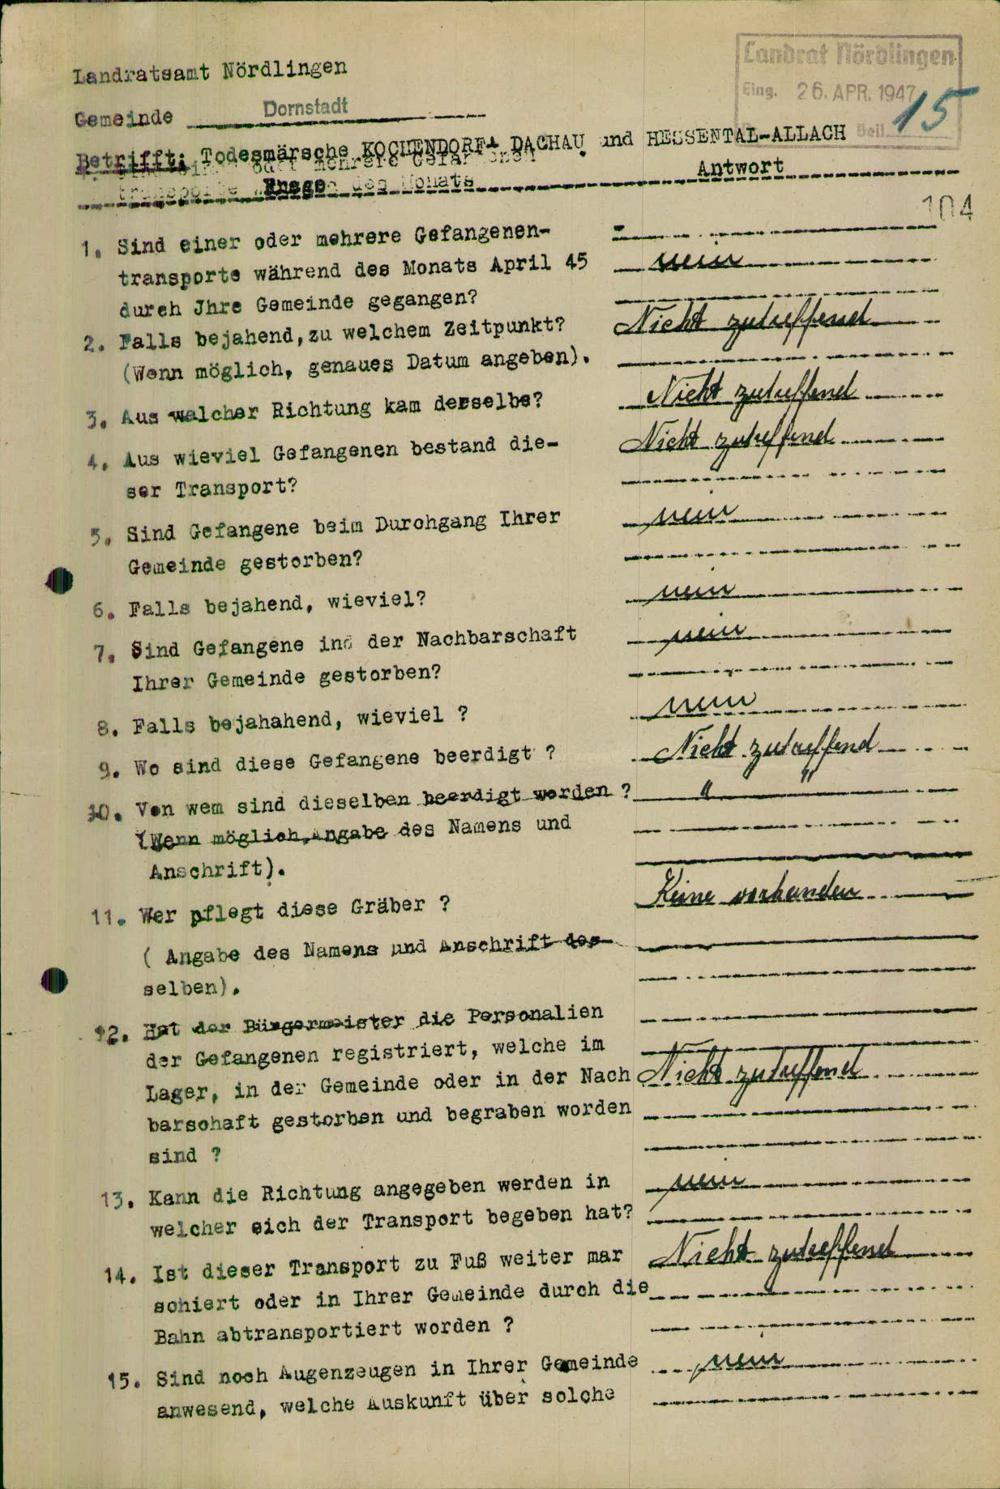 Landrat Nördlingen
Eing. 26. APR. 1947
Beil. 15
Landratsamt Nördlingen
Gemeinde Dornstadt
Betrifft: Todesmärsche KOCHENDORF- DACHAU und HESSENTAL-ALLACH
Antwort
104
1. Sind einer oder mehrere Gefangenen-
transporte während des Monats April 45 nein
durch Jhre Gemeinde gegangen?
2. Falls bejahend, zu welchem Zeitpunkt? Nicht zutreffend
(Wenn möglich, genaues Datum angeben).
3. Aus walcher Richtung kam derselbe? Nicht zutreffend
4. Aus wieviel Gefangenen bestand die- Nicht zutreffend
ser Transport?
5. Sind Gefangene beim Durchgang Ihrer nein
Gemeinde gestorben?
6. Falls bejahend, wieviel? nein
7. Sind Gefangene in der Nachbarschaft nein
Ihrer Gemeinde gestorben?
8. Falls bejahahend, wieviel ? nein
9. Wo sind diese Gefangene beerdigt ? Nicht zutreffend
10. Von wem sind dieselben beerdigt worden ? " "
(Wenn möglich, Angabe des Namens und
Anschrift).
11. Wer pflegt diese Gräber ? Keine vorhanden
( Angabe des Namens und Anschrift des-
selben).
12. Hat der Bürgermeister die Personalien
der Gefangenen registriert, welche im
Lager, in der Gemeinde oder in der Nach Nicht zutreffend
barschaft gestorben und begraben worden
sind ?
13. Kann die Richtung angegeben werden in nein
welcher sich der Transport begeben hat?
14. Ist dieser Transport zu Fuß weiter mar Nicht zutreffend
schiert oder in Ihrer Gemeinde durch die
Bahn abtransportiert worden ?
15. Sind noch Augenzeugen in Ihrer Gemeinde nein
anwesend, welche Auskunft über solche